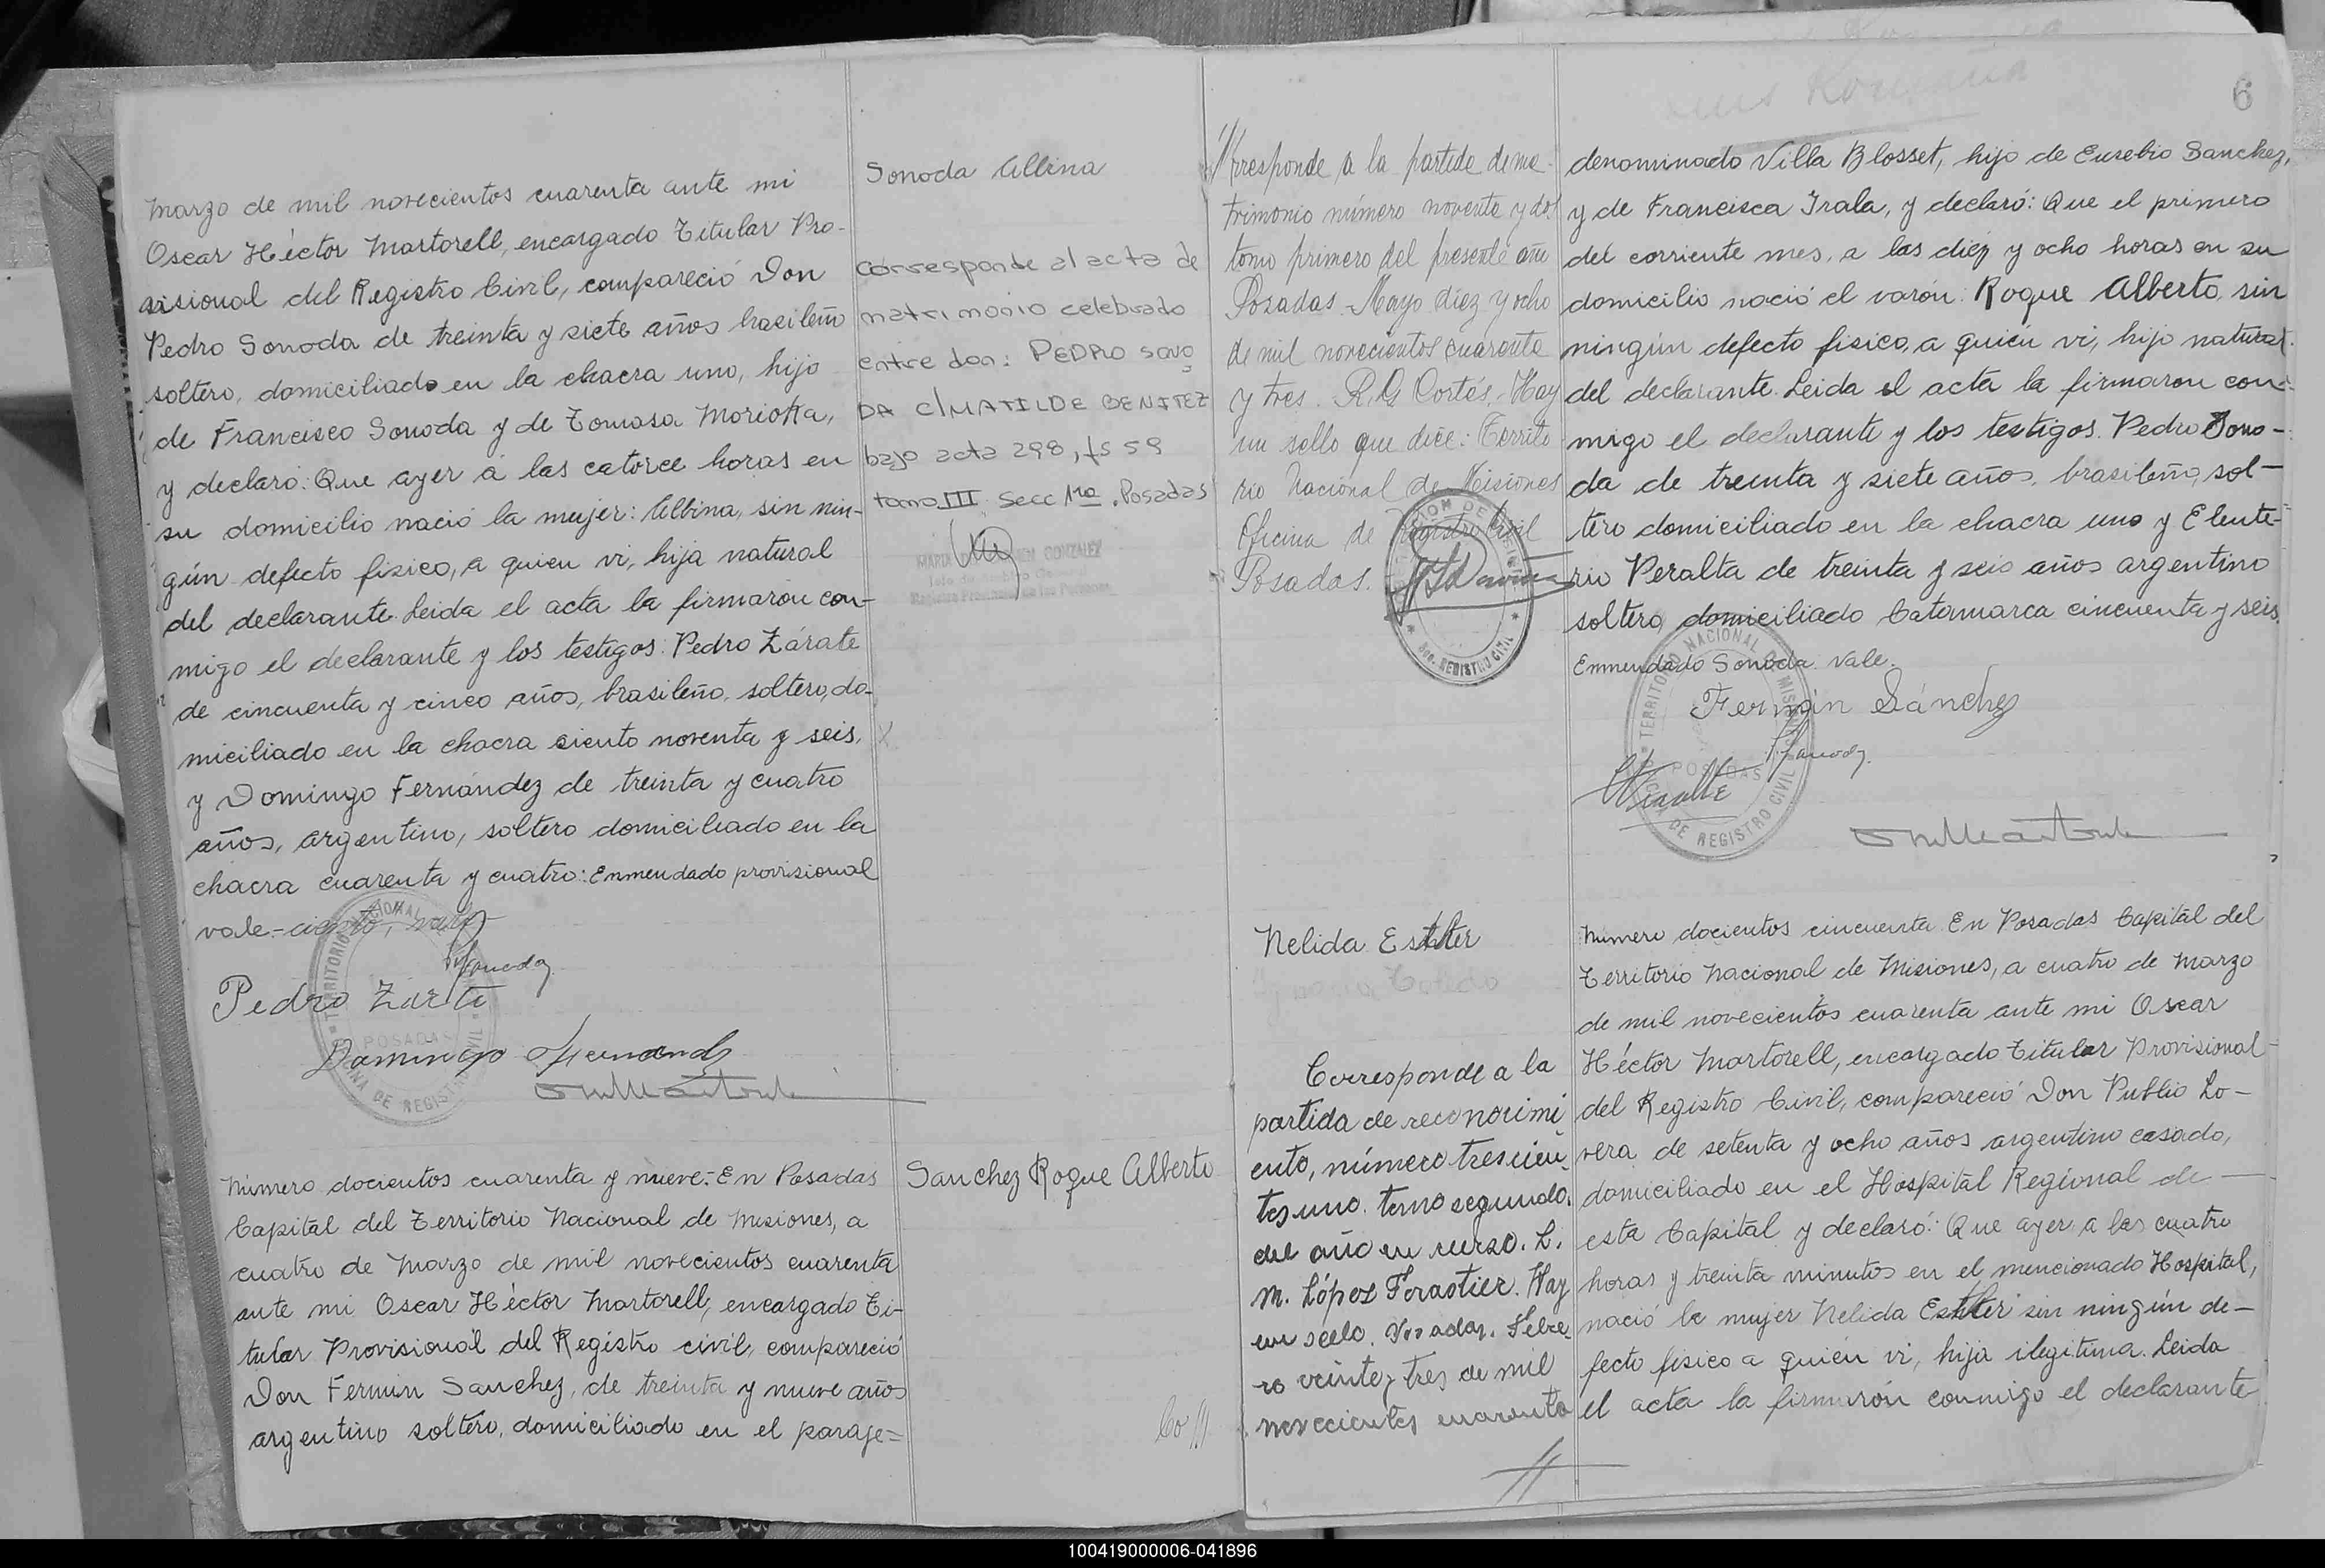 marzo de mil novecientos cuarenta ante mi
Oscar Héctor Martorell, encargado Titular Pro-
visional del Registro Civil, compareció Don
Pedro Sonoda de treinta y siete años brasileño
soltero, domiciliado en la chacra uno, hijo
de Francisco Sonoda y de Tomasa Morioka,
y declaró: Que ayer a las catorce horas en
su domicilio nació la mujer: Albina, sin nin-
gún defecto fisico, a quien vi, hija natural
del declarante. Leida el acta la firmaron con-
migo el declarante y los testigos: Pedro Zárate
de cincuenta y cinco años, brasileño, soltero, do-
miciliado en la chacra ciento noventa y seis,
y Domingo Fernández de treinta y cuatro
años, argentino, soltero domiciliado en la
chacra cuarenta y cuatro: Enmendado provisional
vale-
Sonoda
Pedro Zarte
Domingo Fernandz
TERRITORIO NACIONAL
POSADAS
OFICINA DE REGISTRO CIVIL
Número docientos cuarenta y nueve:- En Posadas
Capital del Territorio Nacional de Misiones, a
cuatro de Marzo de mil novecientos cuarenta
ante mi Oscar Héctor Martorell, encargado Ti-
tular Provisional del Registro civil, compareció
Don Fermin Sanchez, de treinta y nueve años
argentino soltero, domiciliado en el paraje=
Sonoda Albina
corresponde al acta de
matrimonio celebrado
entre don: PEDRO SONO
DA C/MATILDE BENITEZ
bajo acta 298, fs 59
tomo III Secc 1ra. Posadas
MARIA DEL CARMEN GONZALEZ
Sanchez Roque Alberto
Co //
//rresponde a la partida de ma-
trimonio número noventa y dos
tomo primero del presente año
Posadas. Mayo diez y ocho
de mil novecientos cuarenta
y tres. R. G. Cortés. Hay
un sello que dice: Territo-
rio Nacional de Misiones
Oficina de Registro Civil
Posadas.
REGISTRO CIVIL
Nelida Esther
Corresponde a la
partida de reconocimi
ento, número trescien-
tos uno. tomo segundo.
del año en curso. L.
M. López Forastier. Hay
un sello. Posadas. Febre
ro veinte y tres de mil
novecientos cuarenta
//
6
denominado Villa Blosset, hijo de Eusebio Sanchez,
y de Francisca Irala, y declaró: Que el primero
del corriente mes, a las diez y ocho horas en su
domicilio nació el varón: Roque Alberto, sin
ningún defecto fisico, a quien vi, hijo natural
del declarante. Leida el acta la firmaron con-
migo el declarante y los testigos. Pedro Sono-
da de treinta y siete años, brasileño, sol-
tero domiciliado en la chacra uno y Eleute-
rio Peralta de treinta y seis años argentino
soltero, domiciliado Catamarca cincuenta y seis.
Enmendado Sonoda. Vale.
Fermín Sánchez
Sanoda
TERRITORIO NACIONAL DE MISIONES
POSADAS
OFICINA DE REGISTRO CIVIL
Número docientos cincuenta. En Posadas Capital del
Territorio Nacional de Misiones, a cuatro de Marzo
de mil novecientos cuarenta ante mi Oscar
Héctor Martorell, encargado Titular Provisional
del Registro Civil, compareció Don Publio Lo-
vera de setenta y ocho años argentino casado,
domiciliado en el Hospital Regional de
esta Capital y declaró: Que ayer a las cuatro
horas y treinta minutos en el mencionado Hospital,
nació la mujer Nelida Esther sin ningún de-
fecto fisico a quien vi, hija ilegitima. Leida
el acta la firmarón conmigo el declarante
100419000006-041896